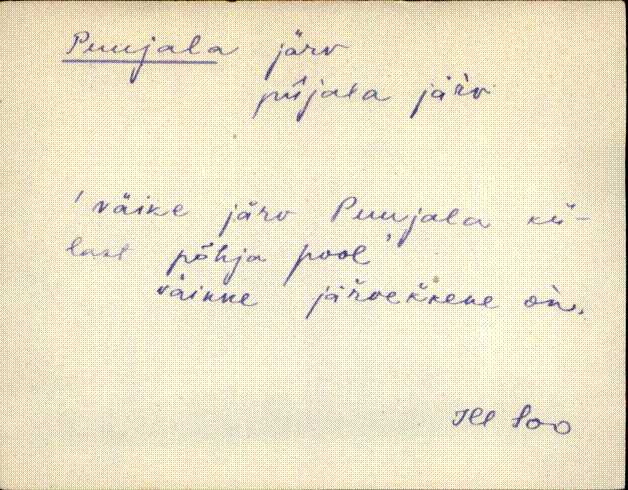 Puujala järv
pùjala jä̀rv
'väike järv Puujala kü-
last põhja pool'
väikke järvekkene òn.
Soo